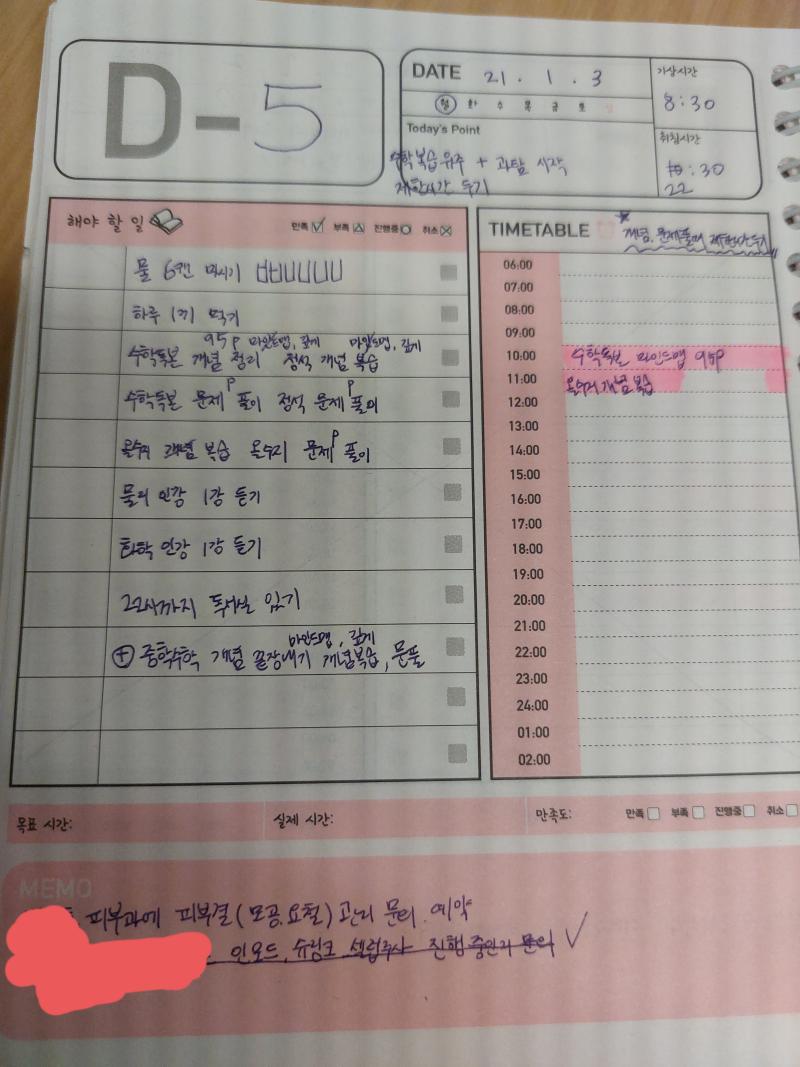 D-5
DATE 21. 1. 3
월 화 수 목 금 토 일
Today's Point
수학복습위주 + 과탐 시작
제한시간 두기
기상시간
8:30
취침시간
:30
22
해야 할 일
만족 부족 진행중 취소
물 6캔 마시기
하루 1끼 먹기
95p 마인드맵, 깊게 마인드맵, 깊게
수학독본 개념 정리 정석 개념 복습
수학독본 문제 풀이 정석 문제 풀이
올수지 개념 복습 올수지 문제 풀이
물리 인강 1강 듣기
화학 인강 1강 듣기
22시까지 독서실 있기
마인드맵, 깊게
+ 중학수학 개념 끝장내기 개념복습, 문풀
TIMETABLE
개념, 문제풀이, 제한시간 두기!!
06:00
07:00
08:00
09:00
10:00 수학독본 마인드맵 95p
11:00
올수지 개념 복습
12:00
13:00
14:00
15:00
16:00
17:00
18:00
19:00
20:00
21:00
22:00
23:00
24:00
01:00
02:00
목표 시간: 실제 시간: 만족도: 만족 부족 진행중 취소
MEMO
피부과에 피부결(모공.요철) 관리 문의. 예약
인모드, 슈링크, 셀럽주사 진행 중인지 문의